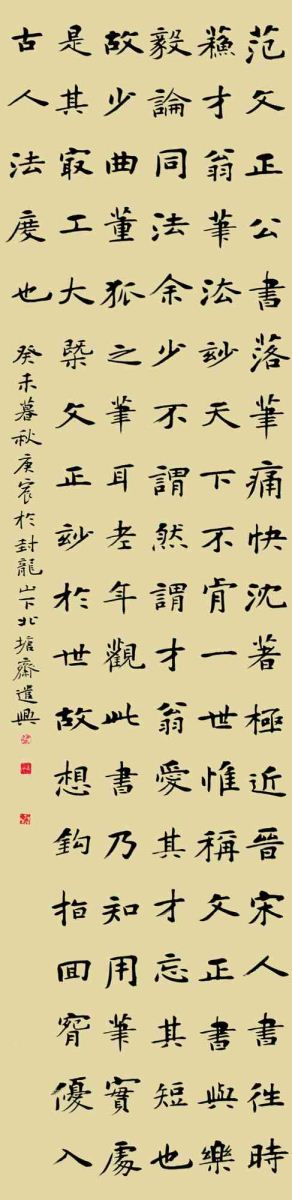 范文正公書落筆痛快沈著極近晉宋人書往時
蘓才翁筆法玅天下不肯一世惟稱文正書與樂
毅論同法余少不謂然謂才翁愛其才忘其短也
故少曲董狐之筆耳老年觀此書乃知用筆實處
是其冣工大槩文正玅於世故想鈎指囬優入
古人法度也
癸未暮秋庚宸於封龍山下北塘齋遣興